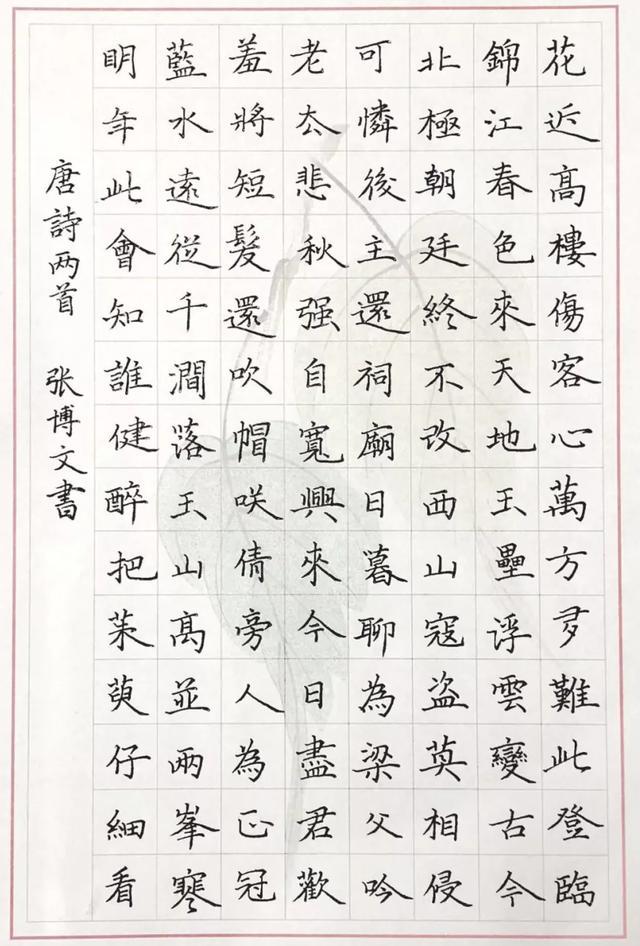 花近高樓傷客心萬方多難此登臨
錦江春色來天地玉壘浮雲變古今
北極朝廷終不改西山寇盜莫相侵
可憐後主還祠廟日暮聊為梁父吟
老去悲秋强自寬興來今日盡君歡
羞將短髮還吹帽咲倩旁人為正冠
藍水遠從千澗落玉山高並兩峯寒
明年此會知誰健醉把茱萸仔細看
唐詩两首 张博文書